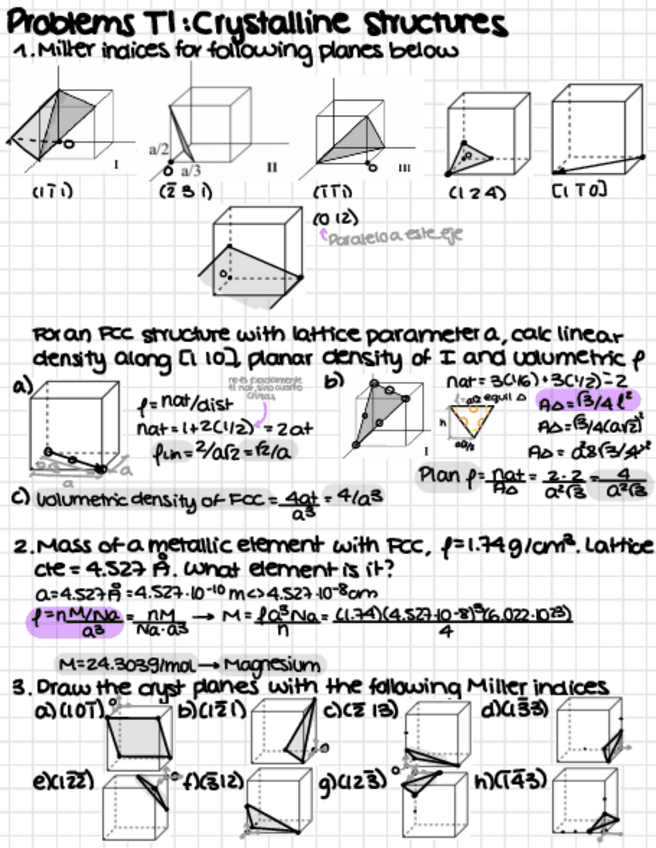 Problems T1: Crystalline structures
1. Miller indices for following planes below
I
a/2
a/3
O
II
III
(1 1̄ 1)
(2̄ 3 1)
(1̄ 1̄ 1)
(1 2 4)
[1 1̄ 0]
(0 1 2)
Paralelo a este eje
For an FCC structure with lattice parameter a, calc linear
density along [1 1 0], planar density of I and volumetric ρ
a)
ρ = nat/dist
nat = 1+2(1/2) = 2at
ρlin = 2/a√2 = √2/a
b)
I
nat = 3(1/6)+3(1/2) = 2
equil Δ
h
AΔ = √3/4 ℓ²
AΔ = √3/4(a√2)²
Plan ρ = nat/AΔ = 2·2/a²√3 = 4/a²√3
c) Volumetric density of FCC = 4at/a³ = 4/a³
2. Mass of a metallic element with FCC, ρ=1.74g/cm³. Lattice
cte = 4.527 Å. What element is it?
a=4.527Å = 4.527·10⁻¹⁰ m <> 4.527·10⁻⁸cm
ρ = nM/Na/a³ = nM/Na·a³ → M = ρa³Na/n = (1.74)(4.527·10-8)³(6.022·10²³)/4
M=24.303g/mol → Magnesium
3. Draw the cryst planes with the following Miller indices
a)(1 0 1̄) b)(1 2̄ 1) c)(2̄ 1 3) d)(1 3̄ 3̄)
e)(1 2̄ 2̄) f)(3̄ 1 2) g)(1 2 3̄) h)(1̄ 4̄ 3)